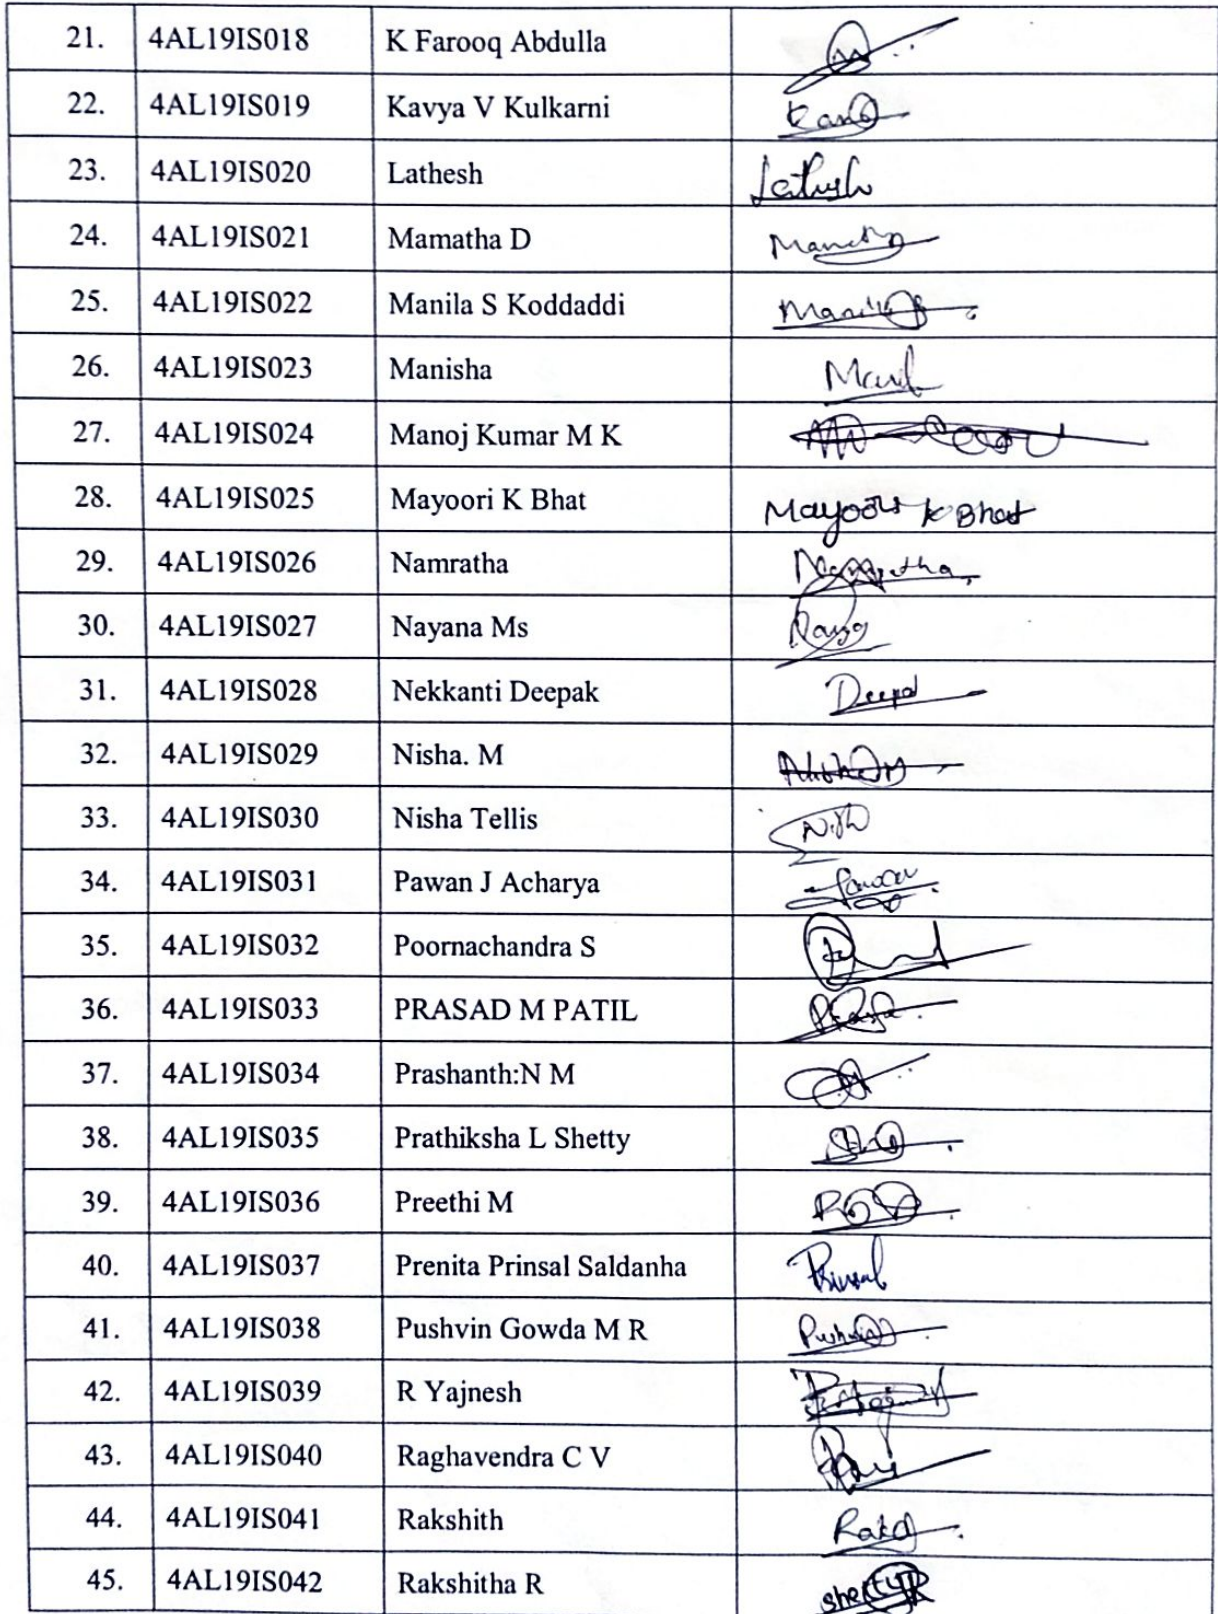 21. 4AL19IS018 K Farooq Abdulla
22. 4AL19IS019 Kavya V Kulkarni
23. 4AL19IS020 Lathesh Lathesh
24. 4AL19IS021 Mamatha D
25. 4AL19IS022 Manila S Koddaddi
26. 4AL19IS023 Manisha
27. 4AL19IS024 Manoj Kumar M K
28. 4AL19IS025 Mayoori K Bhat Mayoori K Bhat
29. 4AL19IS026 Namratha Namratha
30. 4AL19IS027 Nayana Ms
31. 4AL19IS028 Nekkanti Deepak
32. 4AL19IS029 Nisha. M
33. 4AL19IS030 Nisha Tellis
34. 4AL19IS031 Pawan J Acharya
35. 4AL19IS032 Poornachandra S
36. 4AL19IS033 PRASAD M PATIL
37. 4AL19IS034 Prashanth:N M
38. 4AL19IS035 Prathiksha L Shetty
39. 4AL19IS036 Preethi M
40. 4AL19IS037 Prenita Prinsal Saldanha Prinsal
41. 4AL19IS038 Pushvin Gowda M R
42. 4AL19IS039 R Yajnesh
43. 4AL19IS040 Raghavendra C V
44. 4AL19IS041 Rakshith
45. 4AL19IS042 Rakshitha R